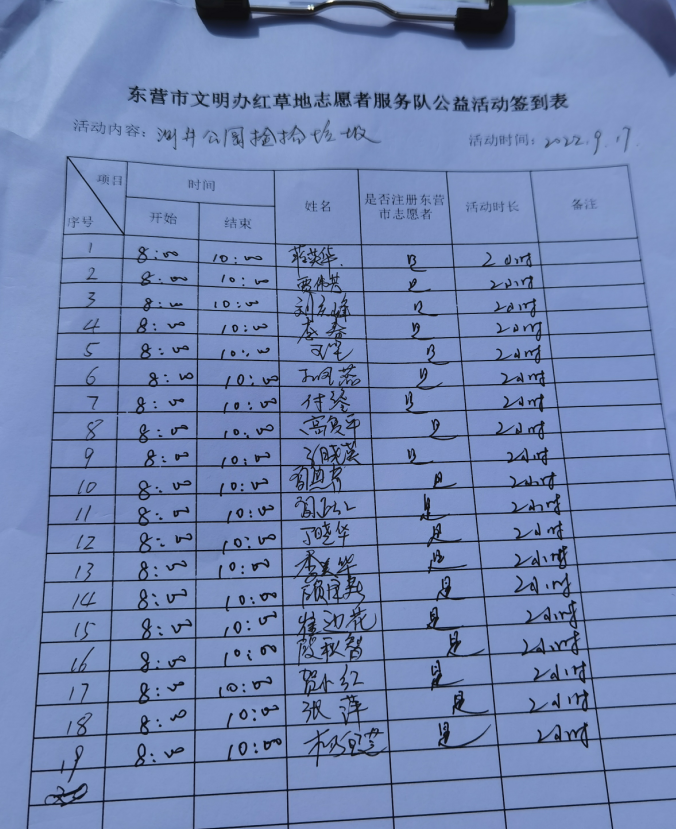 东营市文明办红草地志愿者服务队公益活动签到表
活动内容：公园捡拾垃圾 活动时间：2022.9.17.
项目 时间 姓名 是否注册东营市志愿者 活动时长 备注
序号 开始 结束
1 8:00 10:00 是 2小时
2 8:00 10:00 是 2小时
3 8:00 10:00 是 2小时
4 8:00 10:00 李春 是 2小时
5 8:00 10:00 是 2小时
6 8:00 10:00 是 2小时
7 8:00 10:00 是 2小时
8 8:00 10:00 是 2小时
9 8:00 10:00 是 2小时
10 8:00 10:00 是 2小时
11 8:00 10:00 是 2小时
12 8:00 10:00 丁晓华 是 2小时
13 8:00 10:00 是 2小时
14 8:00 10:00 是 2小时
15 8:00 10:00 是 2小时
16 8:00 10:00 段秋智 是 2小时
17 8:00 10:00 贺小红 是 2小时
18 8:00 10:00 张萍 是 2小时
19 8:00 10:00 是 2小时